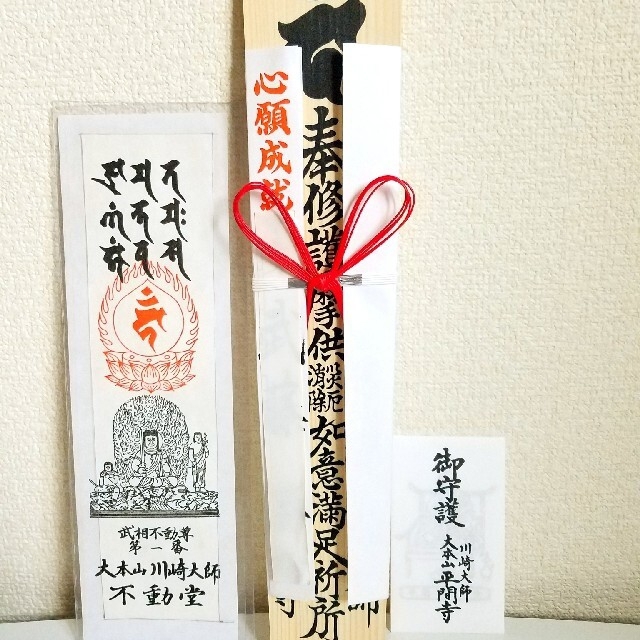 心願成就
奉修護摩供災厄消除如意満足祈所
武相不動尊
第一番
大本山川崎大師
不動堂
御守護
川崎大師
大本山平間寺